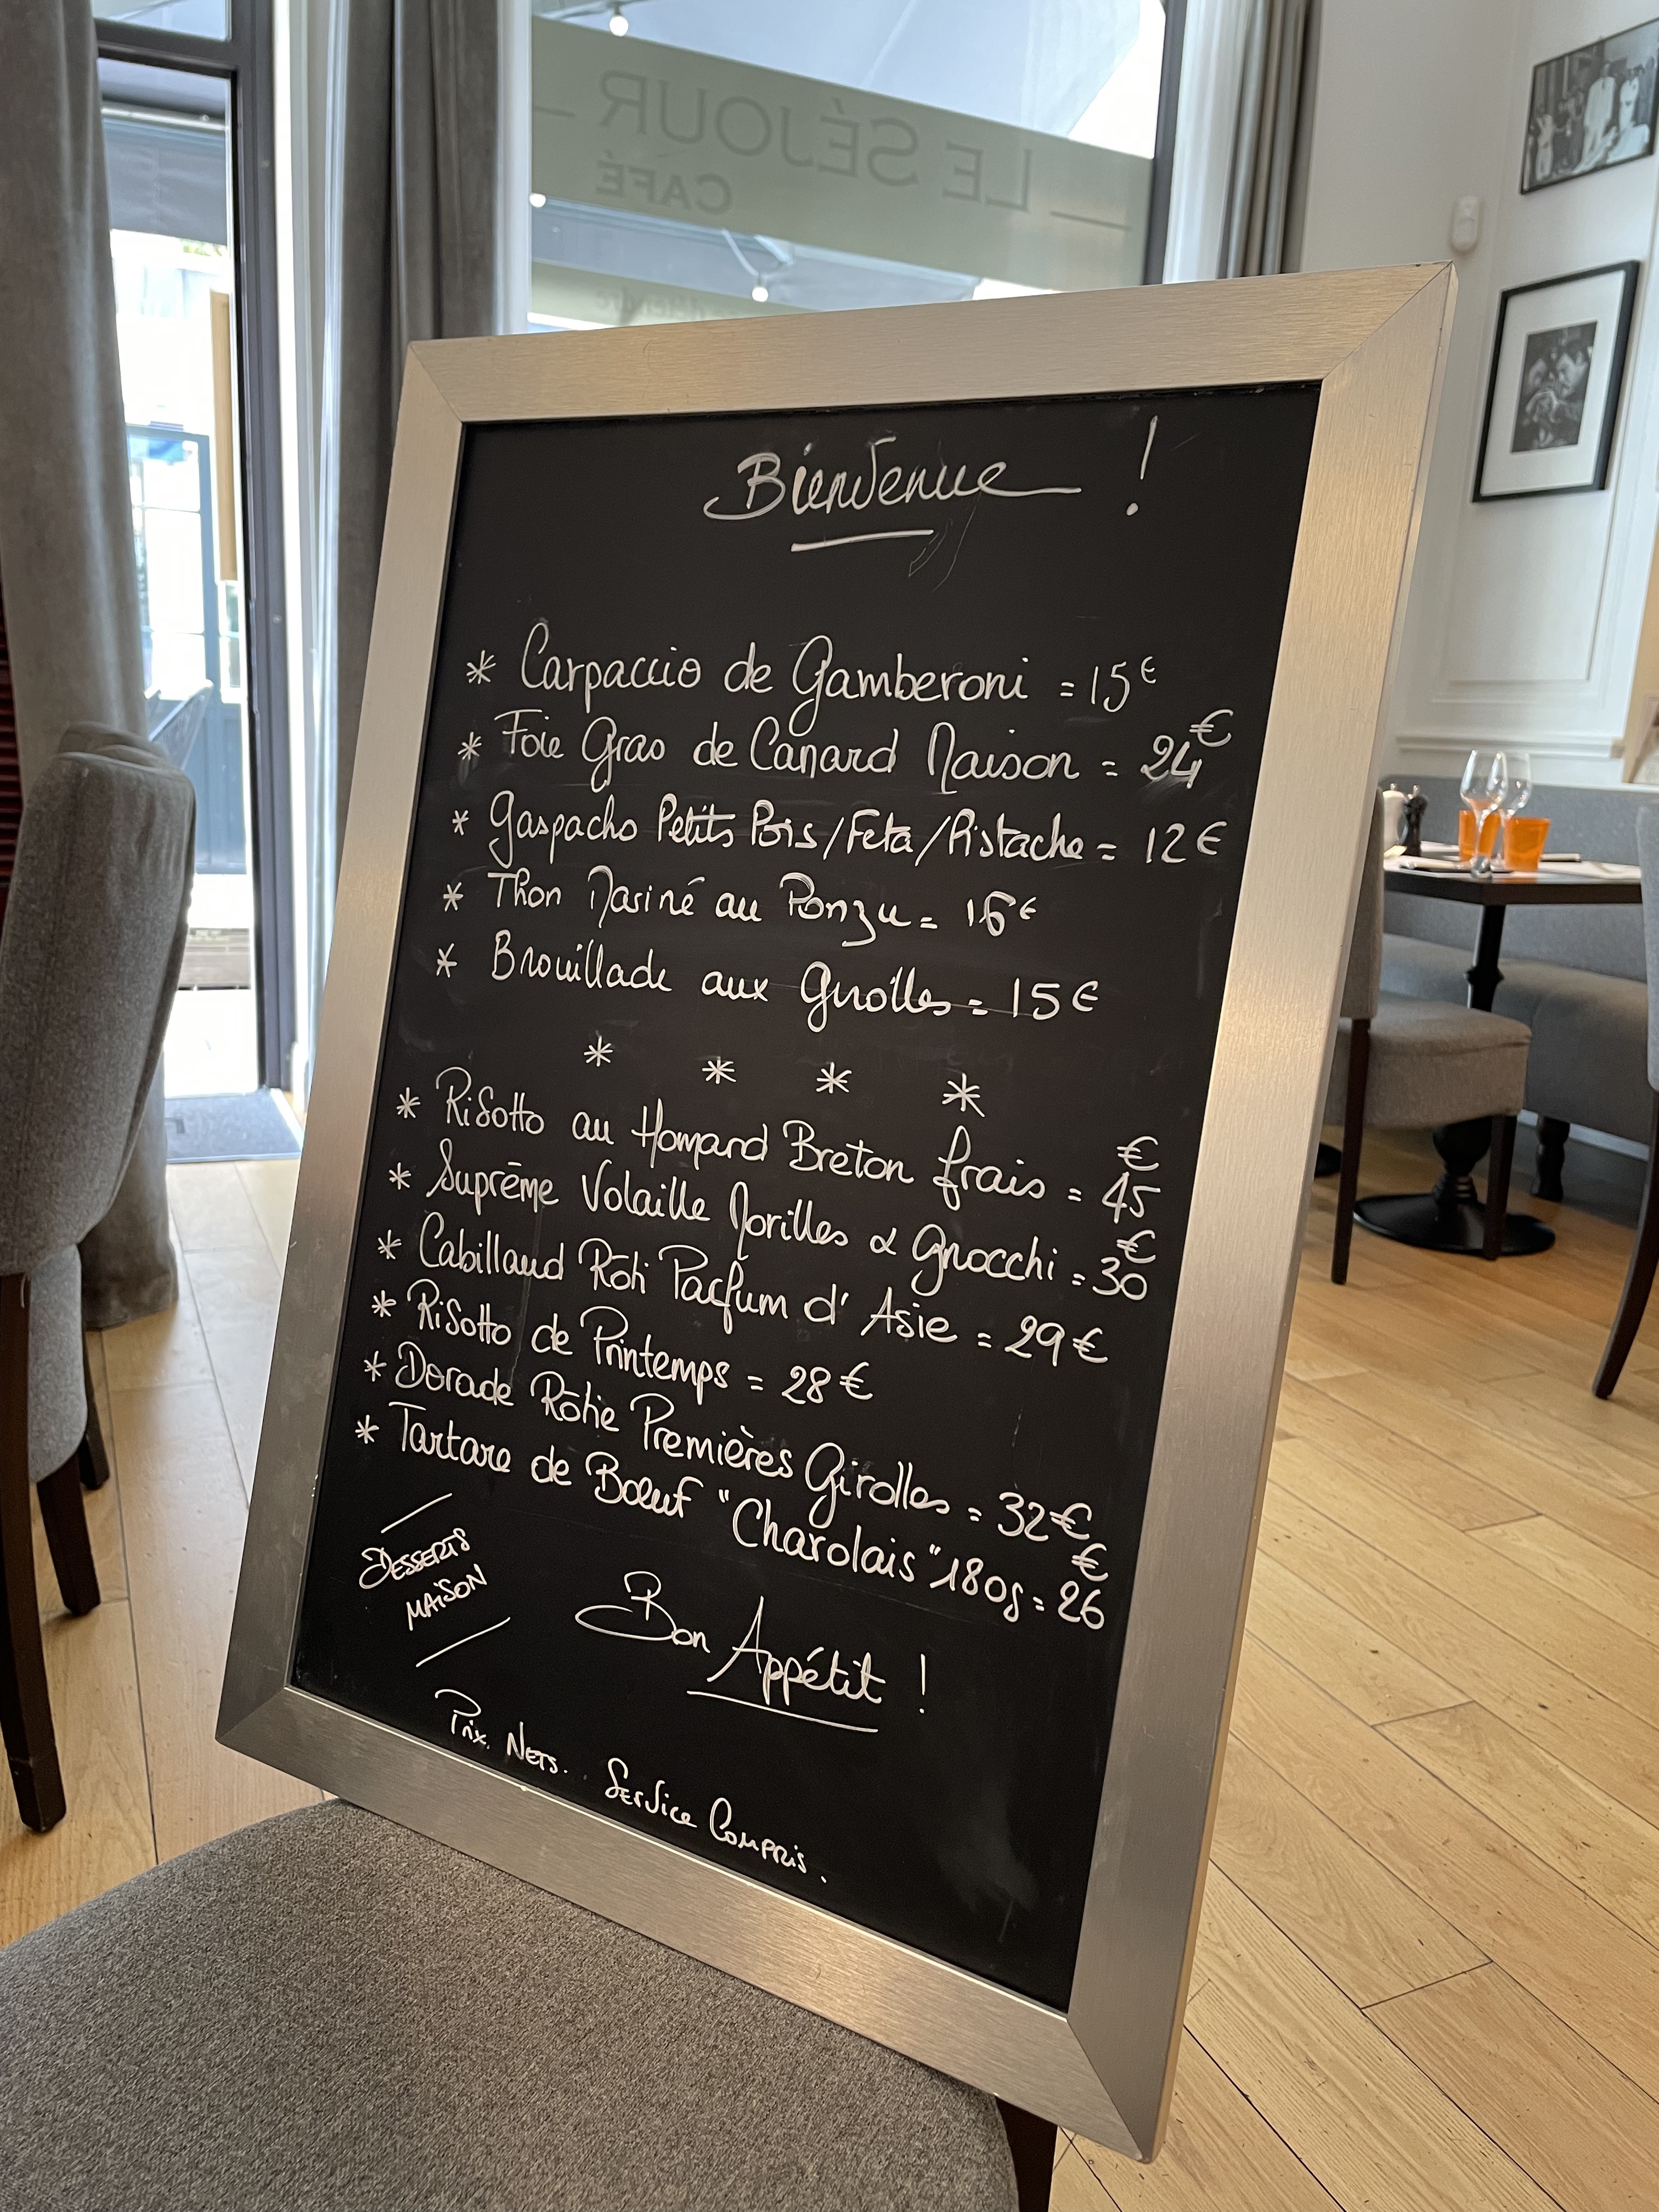 — LE SÉJOUR —
CAFÉ
Bienvenue !
* Carpaccio de Gamberoni = 15€
* Foie Gras de Canard Maison = 24€
* Gaspacho Petits Pois/Feta/Pistache = 12€
* Thon Mariné au Ponzu = 16€
* Brouillade aux Girolles = 15€
* * * *
* Risotto au Homard Breton frais = 45€
* Suprême Volaille Morilles & Gnocchi = 30€
* Cabillaud Rôti Parfum d'Asie = 29€
* Risotto de Printemps = 28€
* Dorade Rôtie Premières Girolles = 32€
* Tartare de Bœuf "Charolais" 180g = 26€
DESSERTS
MAISON
Bon Appétit !
Prix Nets. Service Compris.